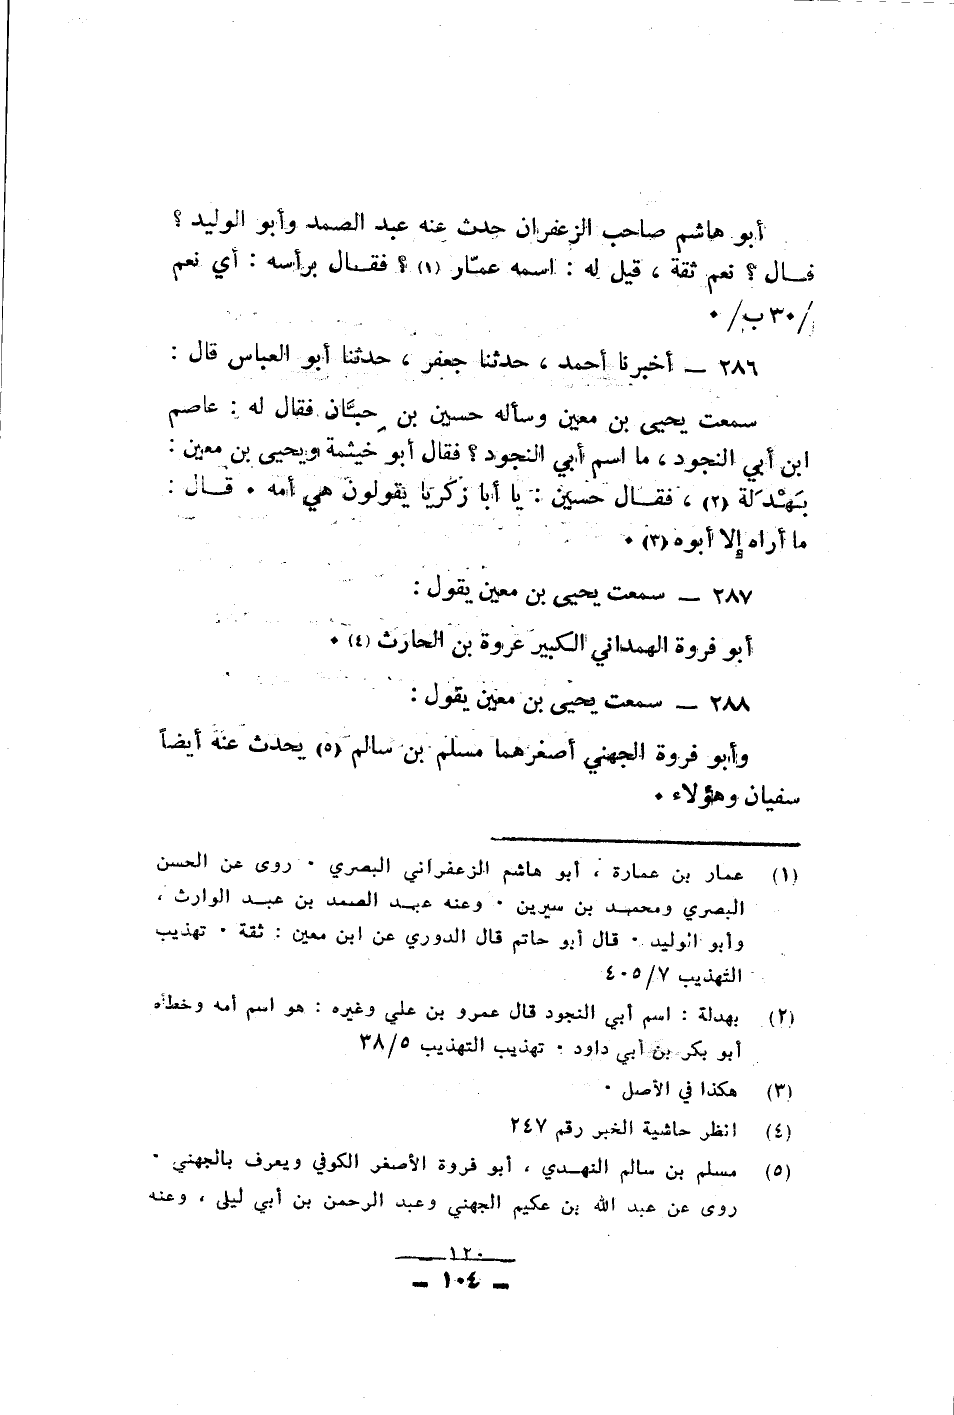 أبو هاشم صاحب الزعفران حدث عنه عبد الصمد وأبو الوليد ؟
فـــال ؟ نعم ثقة ، قيل له : اسمه عمّار (١) ؟ فقـــال برأسه : أي نعم
/٣٠ ب/ ٠
٢٨٦ — أخبرنا أحمد ، حدثنا جعفر ، حدثنا أبو العباس قال :
سمعت يحيى بن معين وسأله حسين بن حِبَّان فقال له : عاصم
ابن أبي النجود ، ما اسم أبي النجود ؟ فقال أبو خيثمة ويحيى بن معين :
بَهْدَلة (٢) ، فقـــال حسين : يا أبا زكريا يقولون هي أمه ٠ قـــال :
ما أراه إلا أبوه (٣) ٠
٢٨٧ — سمعت يحيى بن معين يقول :
أبو فروة الهمداني الكبير عروة بن الحارث (٤) ٠
٢٨٨ — سمعت يحيى بن معين يقول :
وأبو فروة الجهني أصغرهما مسلم بن سالم (٥) يحدث عنه أيضاً
سفيان وهؤلاء ٠
(١) عمار بن عمارة ، أبو هاشم الزعفراني البصري ٠ روى عن الحسن
البصري ومحمد بن سيرين ٠ وعنه عبـد الصمد بن عبـد الوارث ،
وأبو الوليد ٠ قال أبو حاتم قال الدوري عن ابن معين : ثقة ٠ تهذيب
التهذيب ٤٠٥/٧
(٢) بهدلة : اسم أبي النجود قال عمرو بن علي وغيره : هو اسم أمه وخطأه
أبو بكر بن أبي داود ٠ تهذيب التهذيب ٣٨/٥
(٣) هكذا في الأصل ٠
(٤) انظر حاشية الخبر رقم ٢٤٧
(٥) مسلم بن سالم النهـدي ، أبو فروة الأصغر الكوفي ويعرف بالجهني ٠
روى عن عبد الله بن عكيم الجهني وعبد الرحمن بن أبي ليلى ، وعنه
١٢٠
— ١٠٤ —